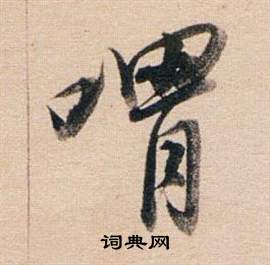 喟
词典网